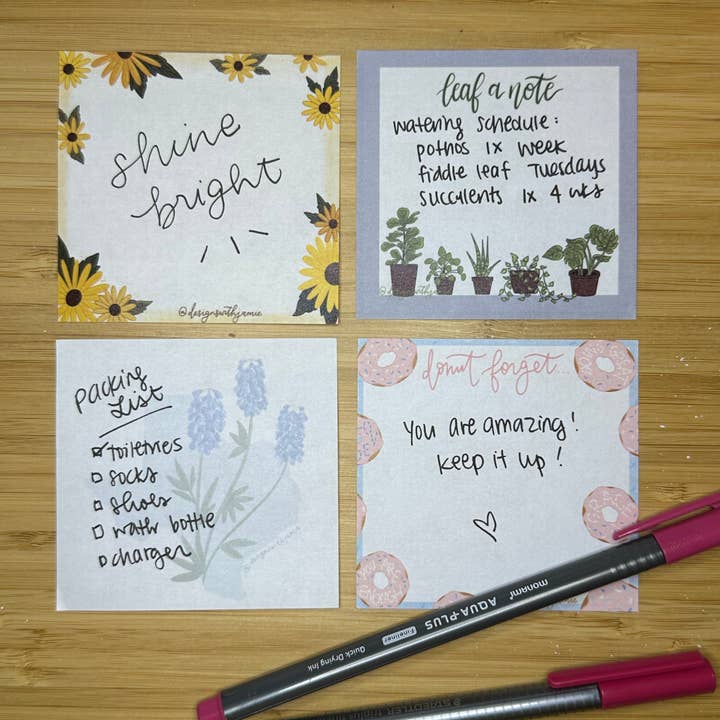 shine
bright
@designswithjamie
leaf a note
watering schedule:
pothos 1x week
fiddle leaf Tuesdays
succulents 1x 4 wks
Packing
List
toiletries
socks
shoes
water bottle
charger
donut forget...
You are amazing!
keep it up!
monami AQUA-PLUS Fineliner
Quick Drying Ink
STAEDTLER triplus